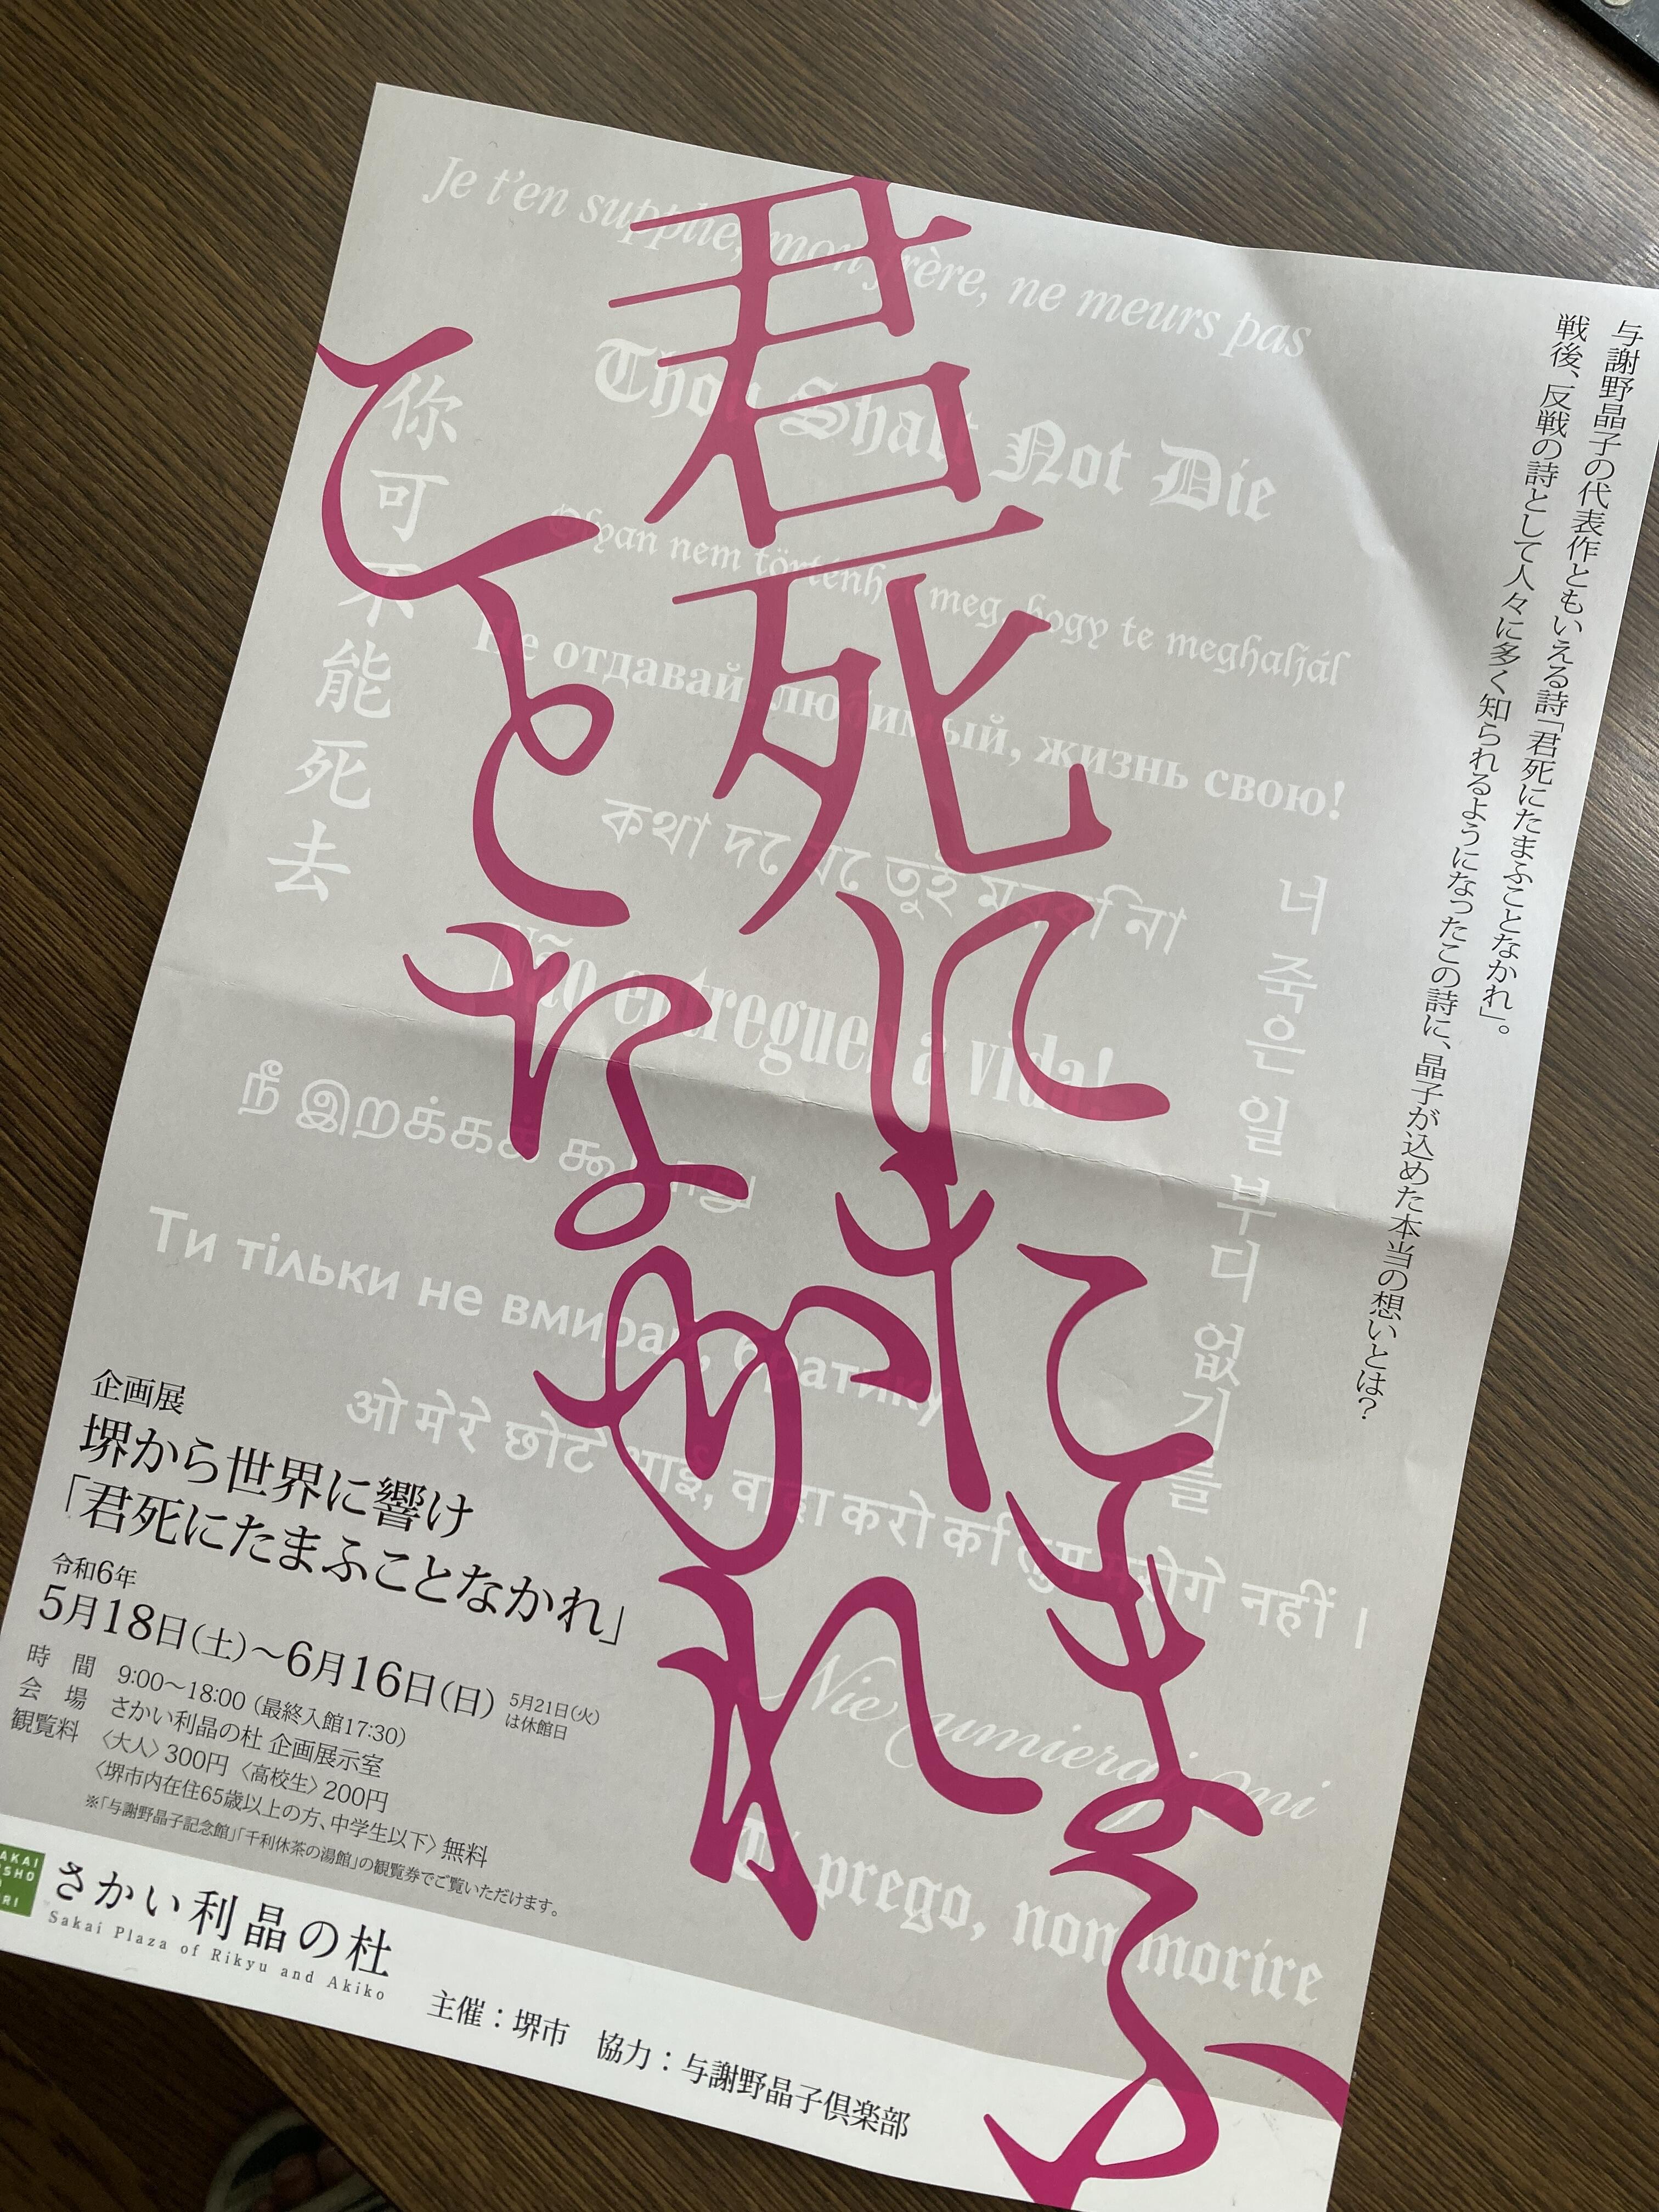 与謝野晶子の代表作ともいえる詩「君死にたまふことなかれ」。
戦後、反戦の詩として人々に多く知られるようになったこの詩に、晶子が込めた本当の想いとは?
君死にたまふ
ことなかれ
Je t'en supplie, mon frère, ne meurs pas
Thou Shalt Not Die
Olyan nem történhet meg, hogy te meghaljál
Не отдавай, любимый, жизнь свою!
কথা দে যে তুই মরবি না
Não entregues a vida!
நீ இறக்கக் கூடாது
Ти тільки не вмирай, братику
ओ मेरे छोटे भाई, वादा करो कि तुम मरोगे नहीं ।
Nie umieraj mi
Ti prego, non morire
너 죽은 일 부디 없기를
你可不能死去
企画展
堺から世界に響け
「君死にたまふことなかれ」
令和6年
5月18日(土)〜6月16日(日) 5月21日(火)は休館日
時間 9:00〜18:00(最終入館17:30)
会場 さかい利晶の杜 企画展示室
観覧料 〈大人〉300円 〈高校生〉200円
〈堺市内在住65歳以上の方、中学生以下〉無料
※「与謝野晶子記念館」「千利休茶の湯館」の観覧券でご覧いただけます。
さかい利晶の杜
Sakai Plaza of Rikyu and Akiko
主催:堺市 協力:与謝野晶子倶楽部